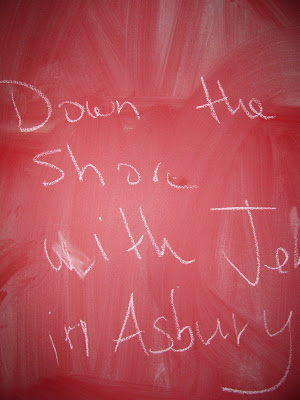 Down the
Shore
with
in Asbury